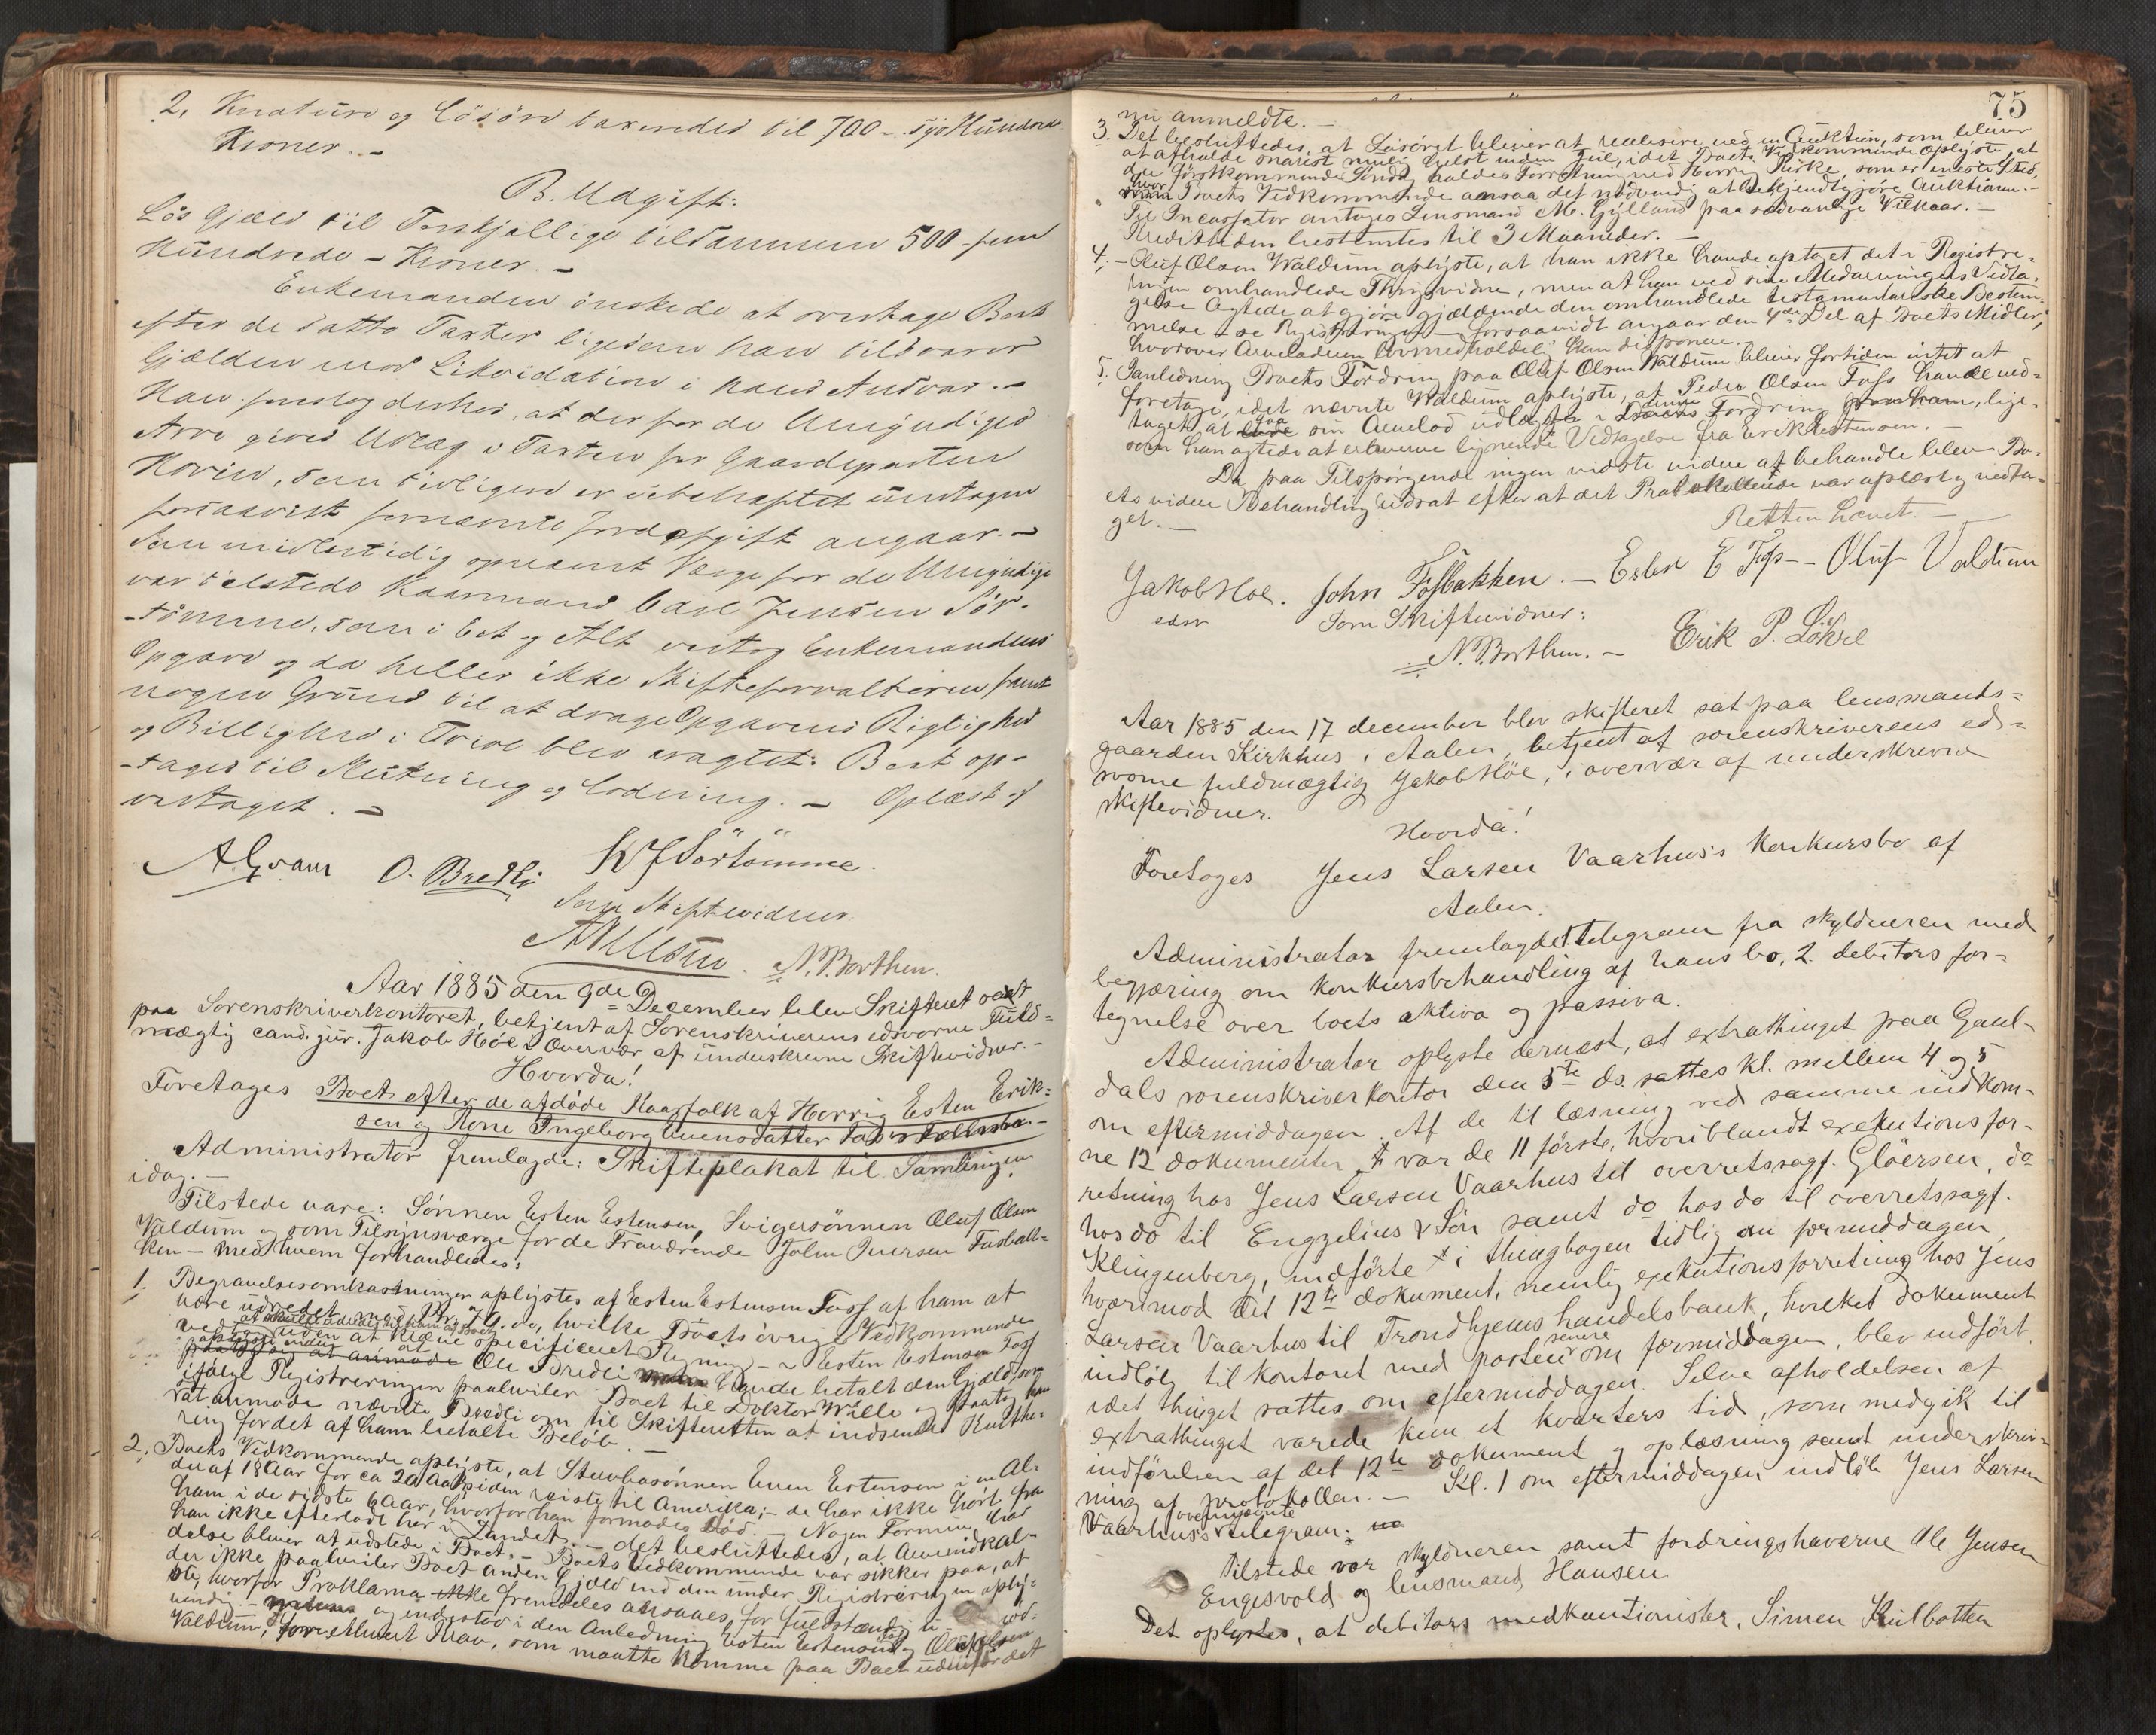 2, Kreature og Lösöre taxeredes til 700 - syv Hundrede
Kroner. -
B. Udgift:
Lös Gjæld til Forskjellige tilsammen 500 - fem
Hundrede - Kroner. -
Enkemanden önskede at overtage Boet
efter de satte Taxter ligesom han tilsvarer
Gjælden mod Likvidation i hans Ansvar. -
Han foreslog derhos, at der for de Umyndiges
Arv gives Udlæg i Taxten for Gaardeparten
som tidligere er ubehæftet undtagen
forsaavidt fornævnte Jordafgift angaar. -
Som midlertidig opnævnt Værge for de Umyndige
var tilstede Kaarmand Carl Jensen Sör-
tömme, som i Et og Alt vedtog Enkemandens
Opgave og da heller ikke Skifteforvalteren fandt
nogen Grund til at drage Opgavens Rigtighed
og Billighed i Tvivl blev eragtet: Boet op-
-tages til Slutning og Lodning. - Oplæst og
vedtaget. -
O. Bredli
Sörtömme.
Som Skiftevidner
N. P. Borthen.
Aar 1885 den 9de December blev Skifteret sat
paa Sorenskriverkontoret, betjent af Sorenskriverens edsvorne Fuld=
mægtig cand. jur. Jakob Höe i Overvær af underskrevne Skiftevidner. -
Hvorda!
Foretages Boet efter de afdöde Kaarfolk af Herrig Esten Erik=
sen og Kone Ingeborg Evensdatter Fos's Fællesbo. -
Administrator fremlagde: Skifteplakat til Samlingen
idag. -
Tilstede vare: Sönnen Esten Estensen, Svigersönnen Oluf Olsen
Valdum og som Tilsynsværge for de Fraværende John Iversen Fosbak-
ken - med hvem forhandledes:
1. Begravelsesomkostninger oplystes af Esten Estensen Foss af ham at
være udredet med hvilke Boets övrige Vedkommende
vedtog uden at kræve specificeret Regning - Esten Estensen Foss
Ole Bredli havde betalt den Gjæld, som
ifölge Registreringen paahviler Boet til Doktor Wille og paatog han
sat anmode nævnte Bredli om til Skifteretten at indsende Kvitte-
ring for det af ham betalte Belöb. -
2, Boets Vedkommende oplyste, at Stervbosönnen Even Estensen i en Al-
der af 18 Aar for ca 20 Aar siden reiste til Amerika; - de har ikke hört fra
ham i de sidste 6 Aar, hvorfor han formodes död. - Nogen Formue har
han ikke efterladt her i Landet. - det besluttedes, at Arveindkal-
delse bliver at udstede i Boet. - Boets Vedkommende var sikker paa, at
der ikke paahviler Boet anden Gjæld end den under Registreringen oply-
ste, hvorfor Proklama ikke fremdeles ansaaes for fuldstændig unöd-
vendig - og indestod i den Anledning Esten Estensen Foss og Oluf Olsen
Valdum, for ethvert Krav, som maatte komme paa Boet udenfor det
75
nu anmeldte. -
3. Det besluttedes, at Lösöret bliver at realisere ved en Auktion, som bliver
at afholde snarest mulig helst inden Jul, idet Boets Vedkommende oplyste, at
der förstkommende Söndag holdes Forretning ved Herrig Kirke, som er eneste Sted,
hvor Boets Vedkommende ansaa det nödvendig at bekjendtgjöre Auktionen. -
Til Incassator antoges Lensmand M. Gylland paa sædvanlige Vilkaar. -
Kredittiden bestemtes til 3 Maaneder. -
4, - Oluf Olsen Waldum oplyste, at han ikke havde optaget det i Registre-
ringen omhandlede Thingsvidne, men at han ved sine Medarvingers Vedta-
gelse agtede at gjöre gjældende den omhandlede testamentariske Bestem-
melse - se Registreringen - forsaavidt angaar den 4de Del af Boets Midler,
hvorover Arveladeren kan disponere.
5. I anledning Boets Fordring paa Oluf Olsen Waldum bliver fortiden intet at
foretage, idet nævnte Waldum oplyste, at Peder Olsen Foss havde ved-
taget at faa sin Arvelod udlagt i denne Fordring, lige-
som han agtede at erhverve lignende Vedtagelse fra Erik Estensen. -
Da paa Tilspörgende ingen vidste videre at behandle blev Bo-
ets videre Behandling udsat efter at det Protokollerede var oplæst og vedta-
get. -
Retten hævet. -
Jakob Höe. John Fossbakken. - Esten E Foss - Oluf Valdum
edsv
Som Skiftevidner:
N. P. Borthen. - Erik P. Löhre
Aar 1885 den 17 december blev skifteret sat paa lensmands=
gaarden Kirkhus i Aalen, betjent af sorenskriverens ed-
svorne fuldmægtig Jakob Höe, i overvær af underskrevne
skiftevidner.
Hvorda!
Foretoges Jens Larsen Vaarhus's konkursbo af
Aalen.
Administrator fremlagde 1. telegram fra skyldneren med
begjæring om konkursbehandling af hans bo, 2. debitors for-
tegnelse over boets aktiva og passiva.
Administrator oplyste dernæst, at extrathinget paa Gaul-
dals sorenskriverkontor den 5te ds. sattes kl. mellem 4 og 5
om eftermiddagen. Af de til læsning ved samme indkom-
ne 12 dokumenter var de 11 förste, hvoriblandt exekutionsfor-
retning hos Jens Larsen Vaarhus til overretssagf. Glöersen, do
hos do til Engzelius & Sön samt do hos do til overretssagf.
Klingenberg, indförte i thingbogen tidlig om formiddagen,
hvorimod det 12te dokument, nemlig exekutionsforretning hos Jens
Larsen Vaarhus til Trondhjems handelsbank, hvilket dokument
indlöb til kontoret med posten senere om formiddagen, blev indfört,
idet thinget sattes om eftermiddagen. Selve afholdelsen af
extrathinget varede kun et kvarters tid, som medgik til
indförelsen af det 12te dokument og oplæsning samt underskriv-
ning af protokollen. - Kl. 1 om eftermiddagen indlöb Jens Larsen
Vaarhus's ovennævnte telegram.
Tilstede var skyldneren samt fordringshaverne Ole Jensen
Engesvold og lensmand Hansen.
Det oplystes, at debitors medkautionister, Simen Kulbotten